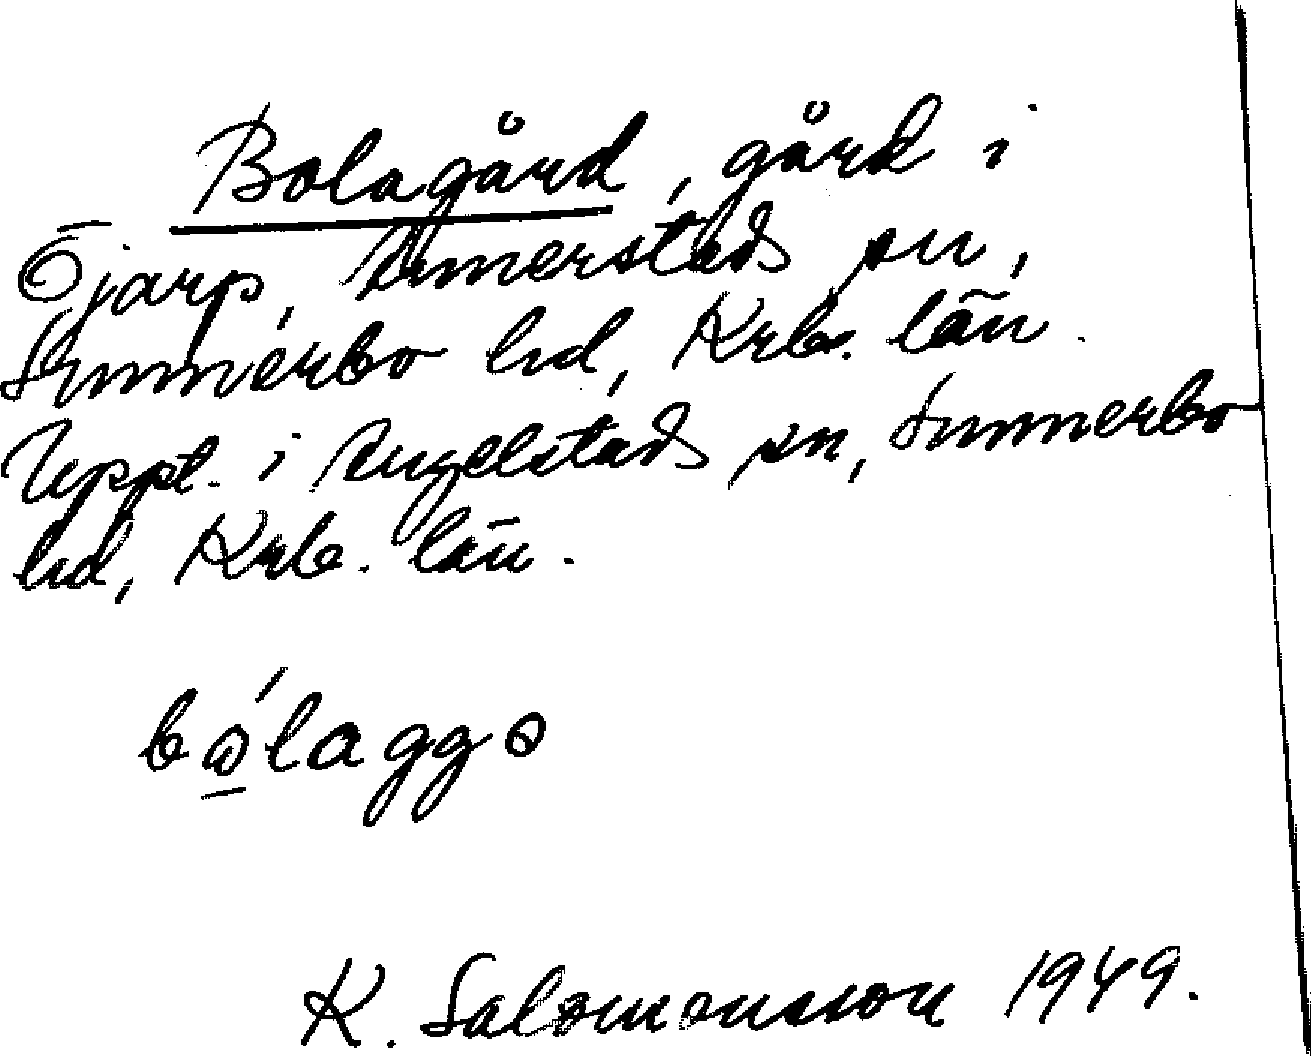 Bolagård, gård i
Öjarp, Annerstads sn,
Sunnerbo hd, Krbs. län.
Uppt. i Angelstads sn, Sunnerbo
hd, Krb. län.
bώ̲laggo
K. Salomonsson 1949.